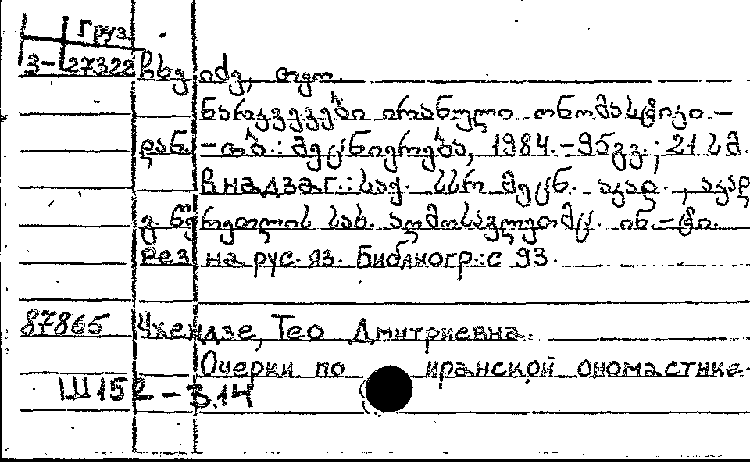 Груз
З-27322 ჩხეიძე, თეო.
ნარკვევები ირანული ონომასტიკი-
დან. -თბ.: მეცნიერება, 1984.-95გვ.; 21 სმ.
В надзаг.: საქ. სსრ მეცნ. აკად., აკად
გ. წერეთლის სახ. აღმოსავლეთმც. ინ-ტი.
Рез на рус. яз. Библиогр.: с 93.
87865 Чхеидзе, Тео Дмитриевна.
Очерки по иранской ономастике.
Ш152-3.14